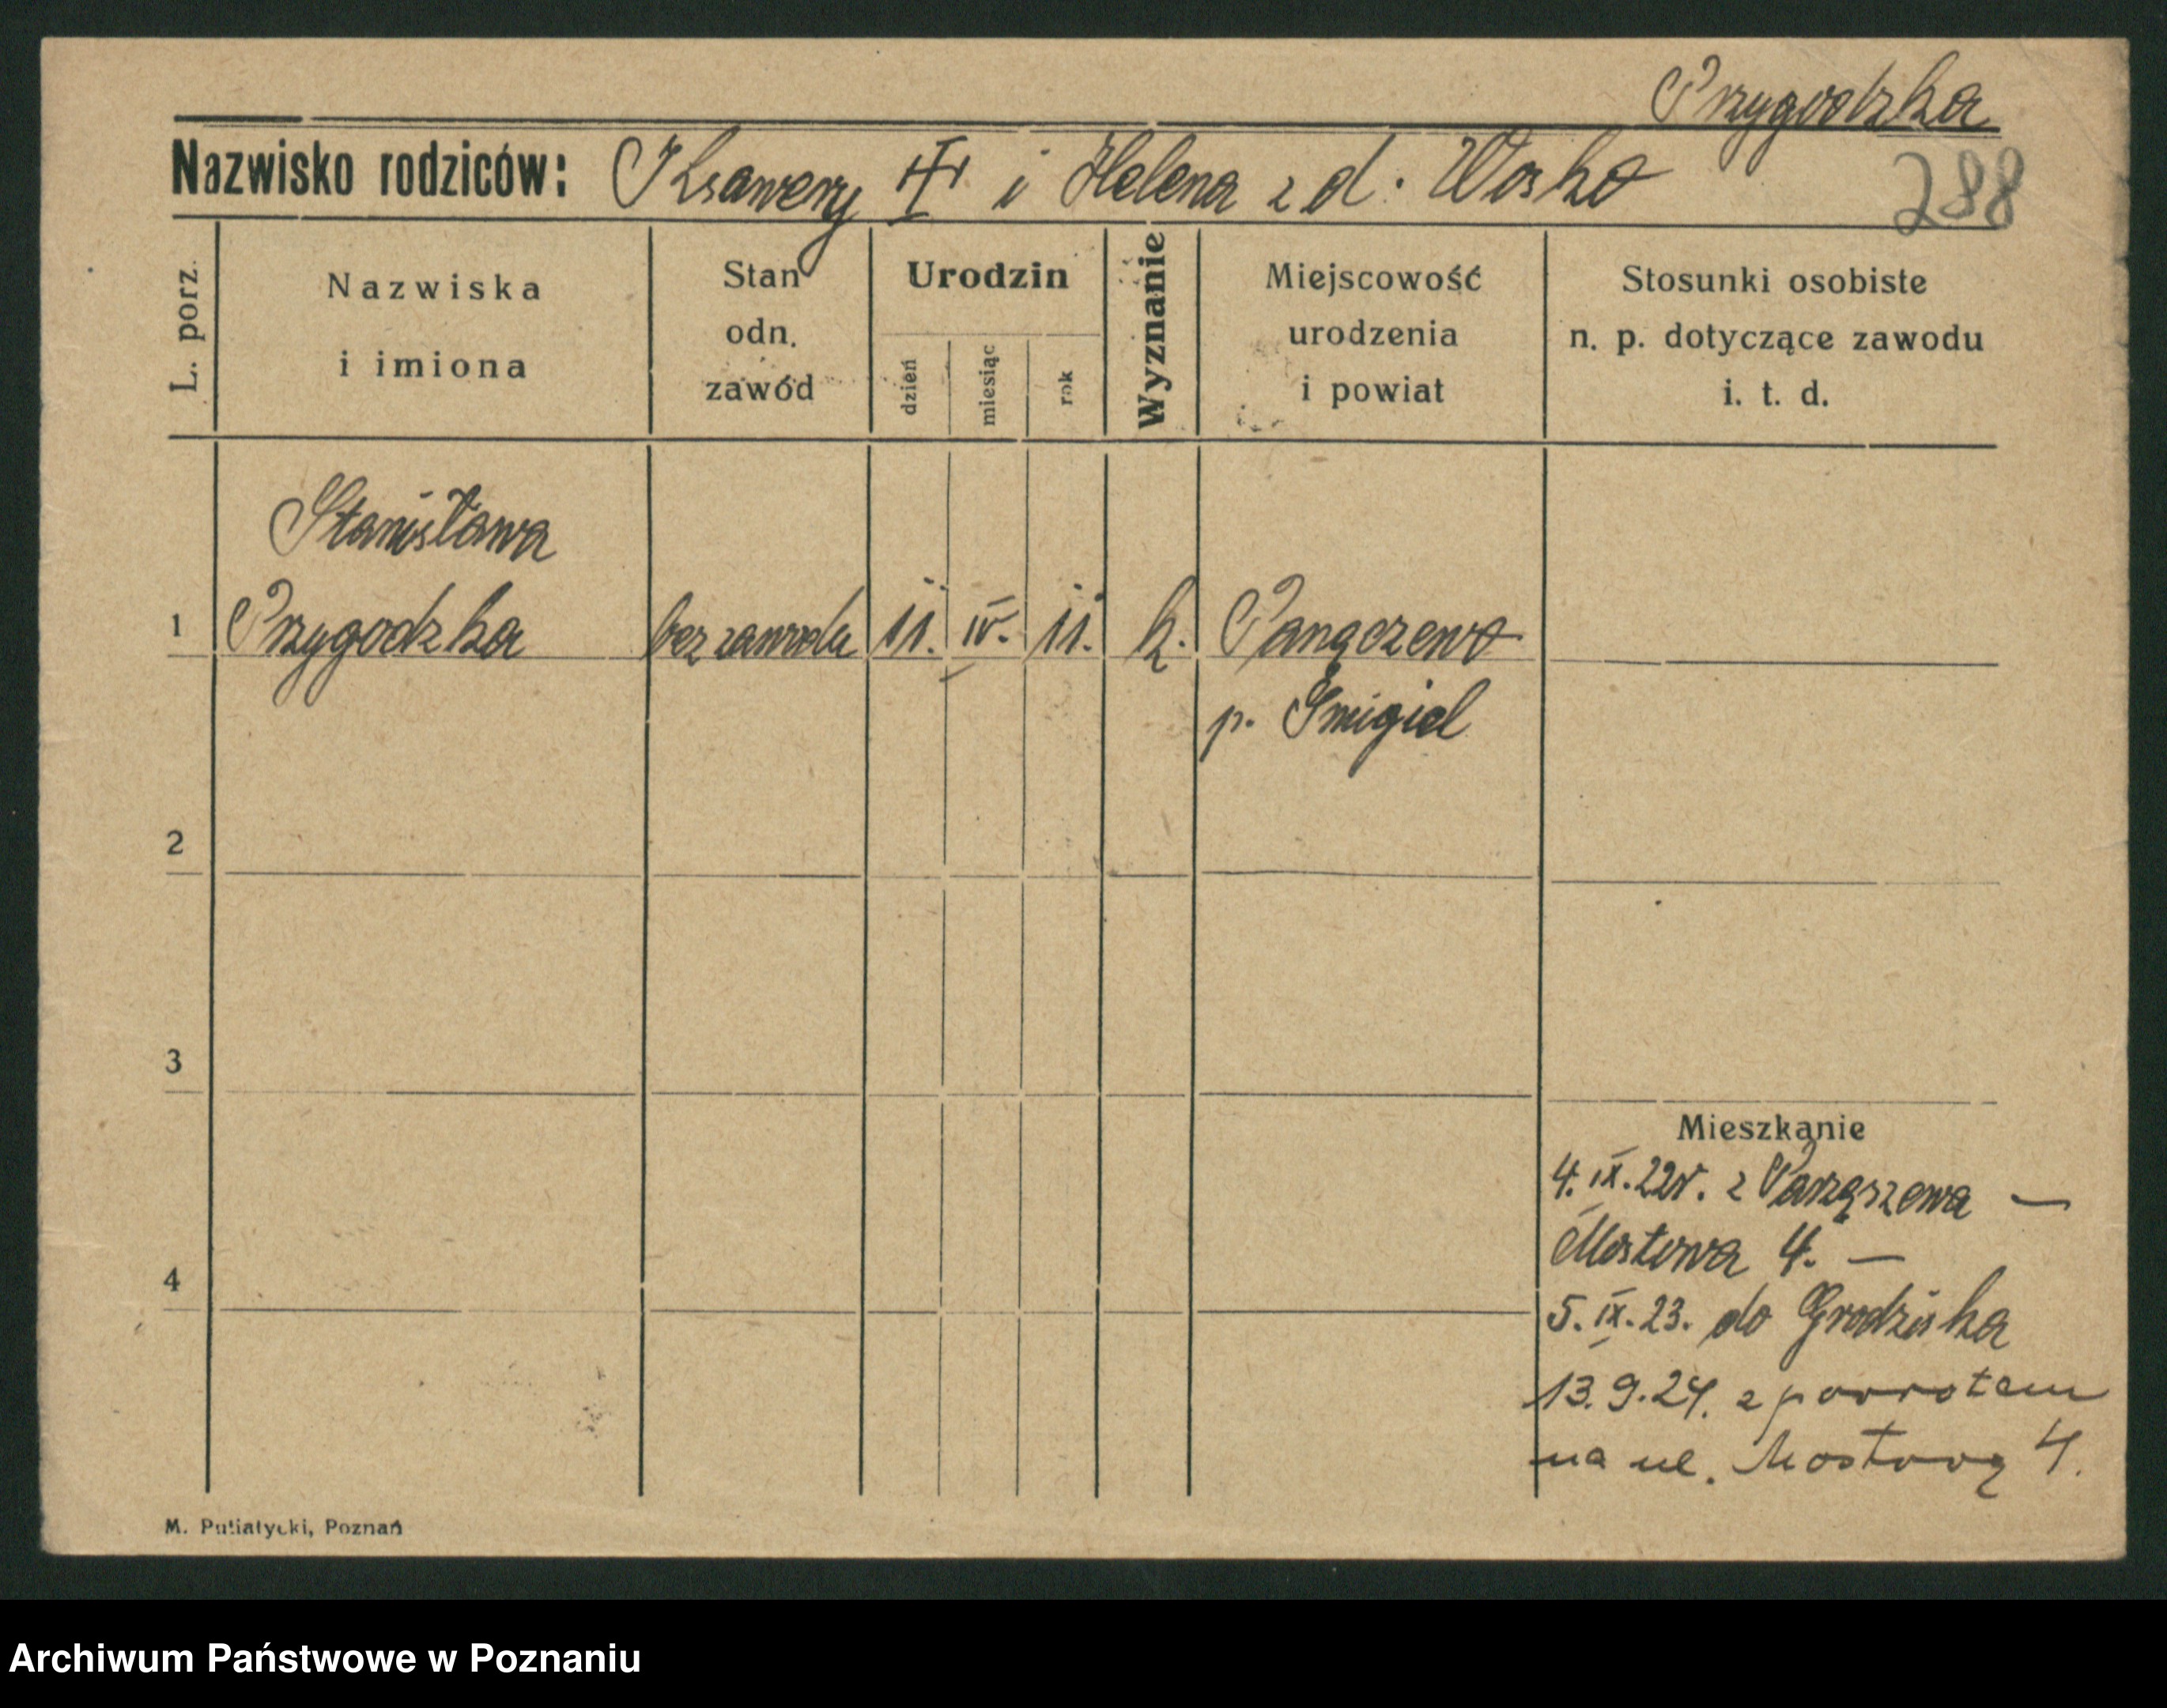 Przygodzka
Nazwisko rodziców: Ksawery i Helena z d. Wosko
288
L. porz.
Nazwiska
i imiona
Stan
odn.
zawód
Urodzin
dzień
miesiąc
rok
Wyznanie
Miejscowość
urodzenia
i powiat
Stosunki osobiste
n. p. dotyczące zawodu
i. t. d.
Stanisława
1 Przygodzka bez zawodu 11. IV. 11. k.
p. Śmigiel
2
3
Mieszkanie
4. IX. 22r. z —
Mostowa 4. —
4
5. IX. 23. do Grodziska
13. 9. 24. z powrotem
na ul. Mostową 4.
M. Putiatycki, Poznań
Archiwum Państwowe w Poznaniu